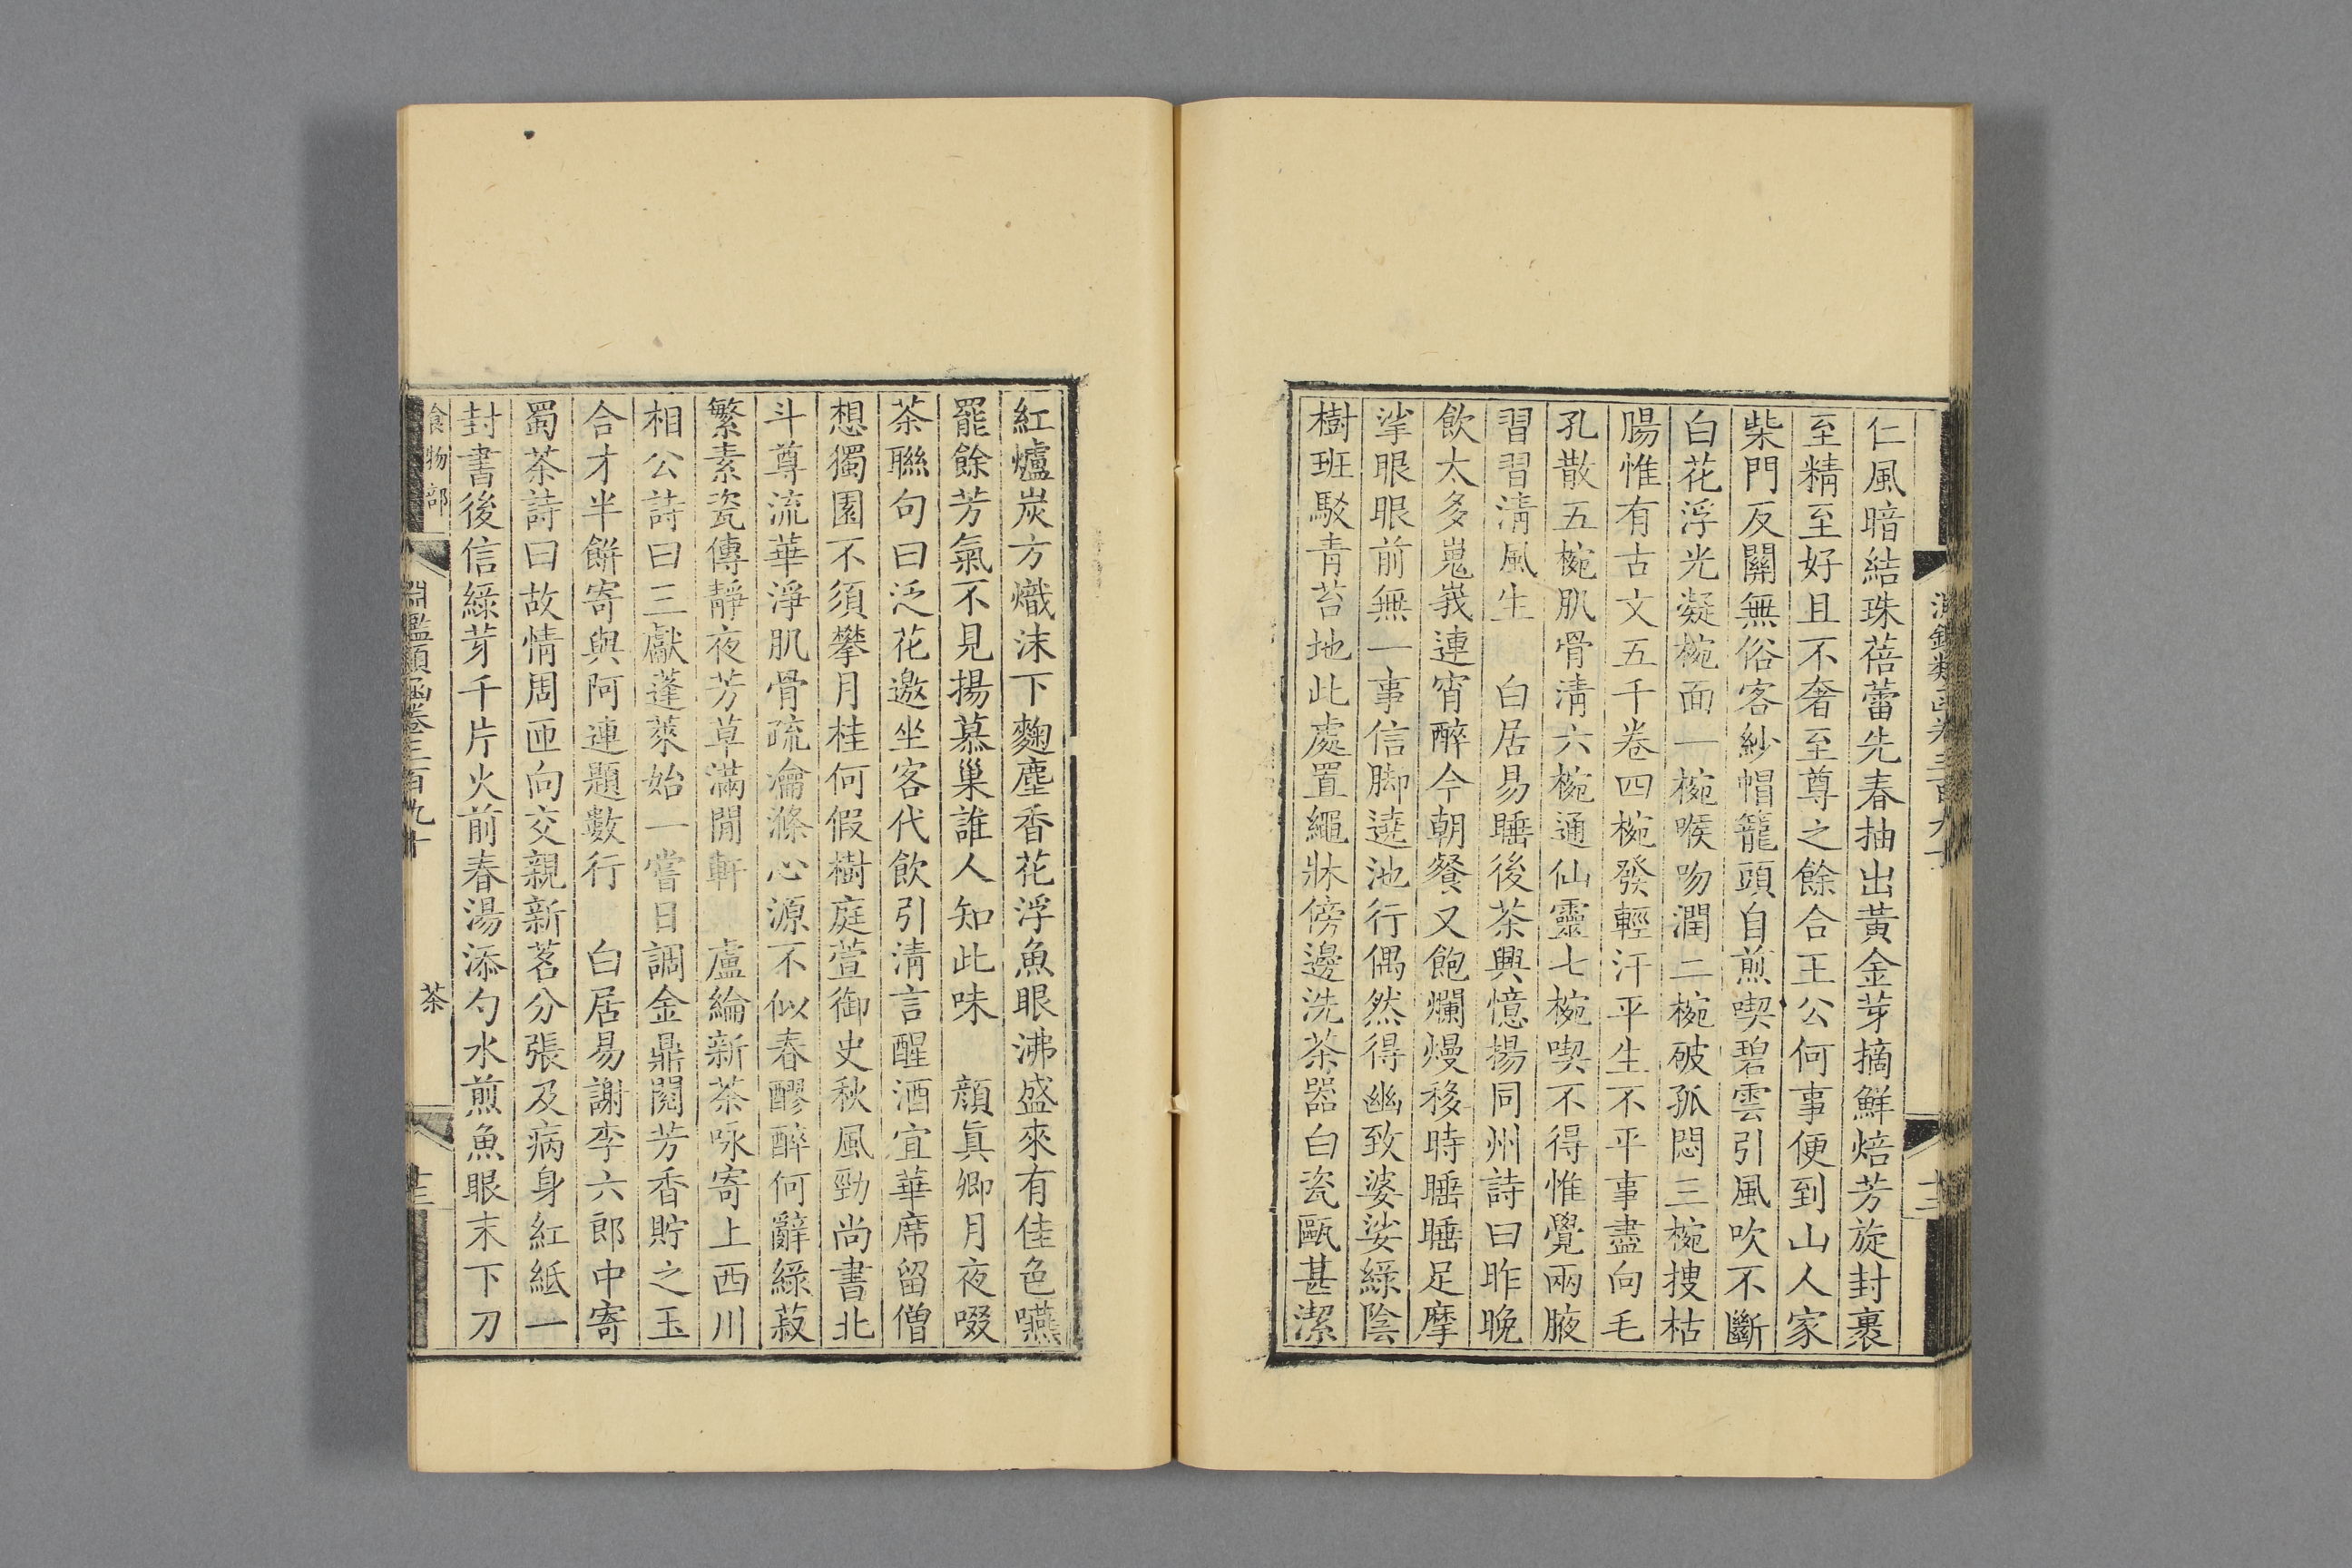 仁風暗結珠蓓蕾先春抽出黃金芽摘鮮焙芳旋封裹
至精至好且不奢至尊之餘合王公何事便到山人家
柴門反關無俗客紗帽籠頭自煎喫碧雲引風吹不斷
白花浮光凝椀面一椀喉吻潤二椀破孤悶三椀搜枯
腸惟有古文五千卷四椀發輕汗平生不平事盡向毛
孔散五椀肌骨清六椀通仙靈七椀喫不得惟覺兩腋
習習清風生 白居易睡後茶興憶揚同州詩曰昨晚
飲太多嵬峩連宵醉今朝餐又飽爛熳移時睡睡足摩
挲眼眼前無一事信脚遶池行偶然得幽致婆娑綠陰
樹班駁青苔地此處置繩牀傍邊洗茶器白瓷甌甚潔
紅爐炭方熾沫下麴塵香花浮魚眼沸盛來有佳色嚥
罷餘芳氣不見揚慕巢誰人知此味 顏眞卿月夜啜
茶聯句曰泛花邀坐客代飲引清言醒酒宜華席留僧
想獨園不須攀月桂何假樹庭萱御史秋風勁尚書北
斗尊流華淨肌骨疏瀹滌心源不似春醪醉何辭綠菽
繁素瓷傳靜夜芳草滿閒軒 盧綸新茶咏寄上西川
相公詩曰三獻蓬萊始一嘗日調金鼎閱芳香貯之玉
合才半餅寄與阿連題數行 白居易謝李六郎中寄
蜀茶詩曰故情周匝向交親新茗分張及病身紅紙一
封書後信綠芽千片火前春湯添勺水煎魚眼末下刀
食物部 淵鑑類函卷三百九十 茶 十三